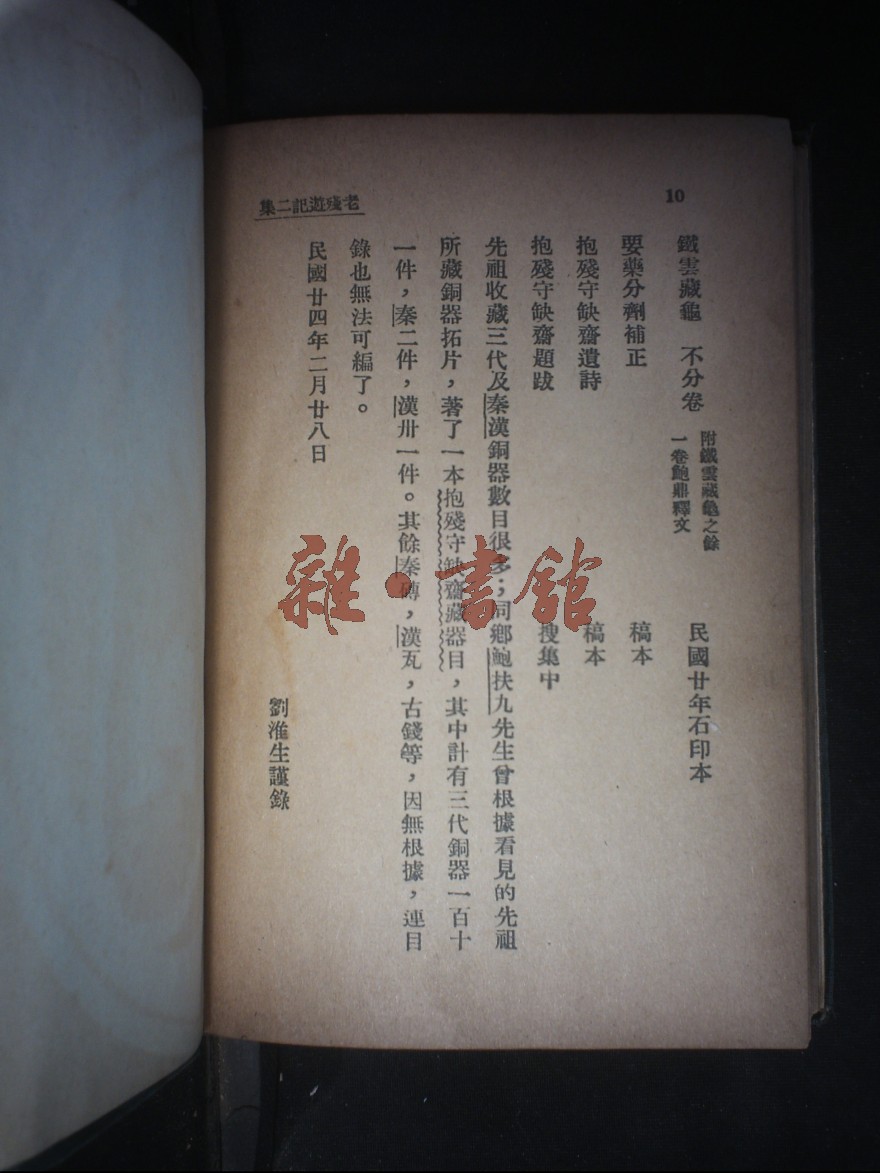 老殘遊記二集
10
鐵雲藏龜　不分卷　附鐵雲藏龜之餘
一卷鮑鼎釋文　民國廿年石印本
要藥分劑補正　稿本
抱殘守缺齋遺詩　稿本
抱殘守缺齋題跋　搜集中
先祖收藏三代及秦漢銅器數目很多；同鄉鮑扶九先生曾根據看見的先祖
所藏銅器拓片，著了一本抱殘守缺齋藏器目，其中計有三代銅器一百十
一件，秦二件，漢卅一件。其餘秦磚，漢瓦，古錢等，因無根據，連目
錄也無法可編了。
民國廿四年二月廿八日
劉淮生謹錄
雜·書館